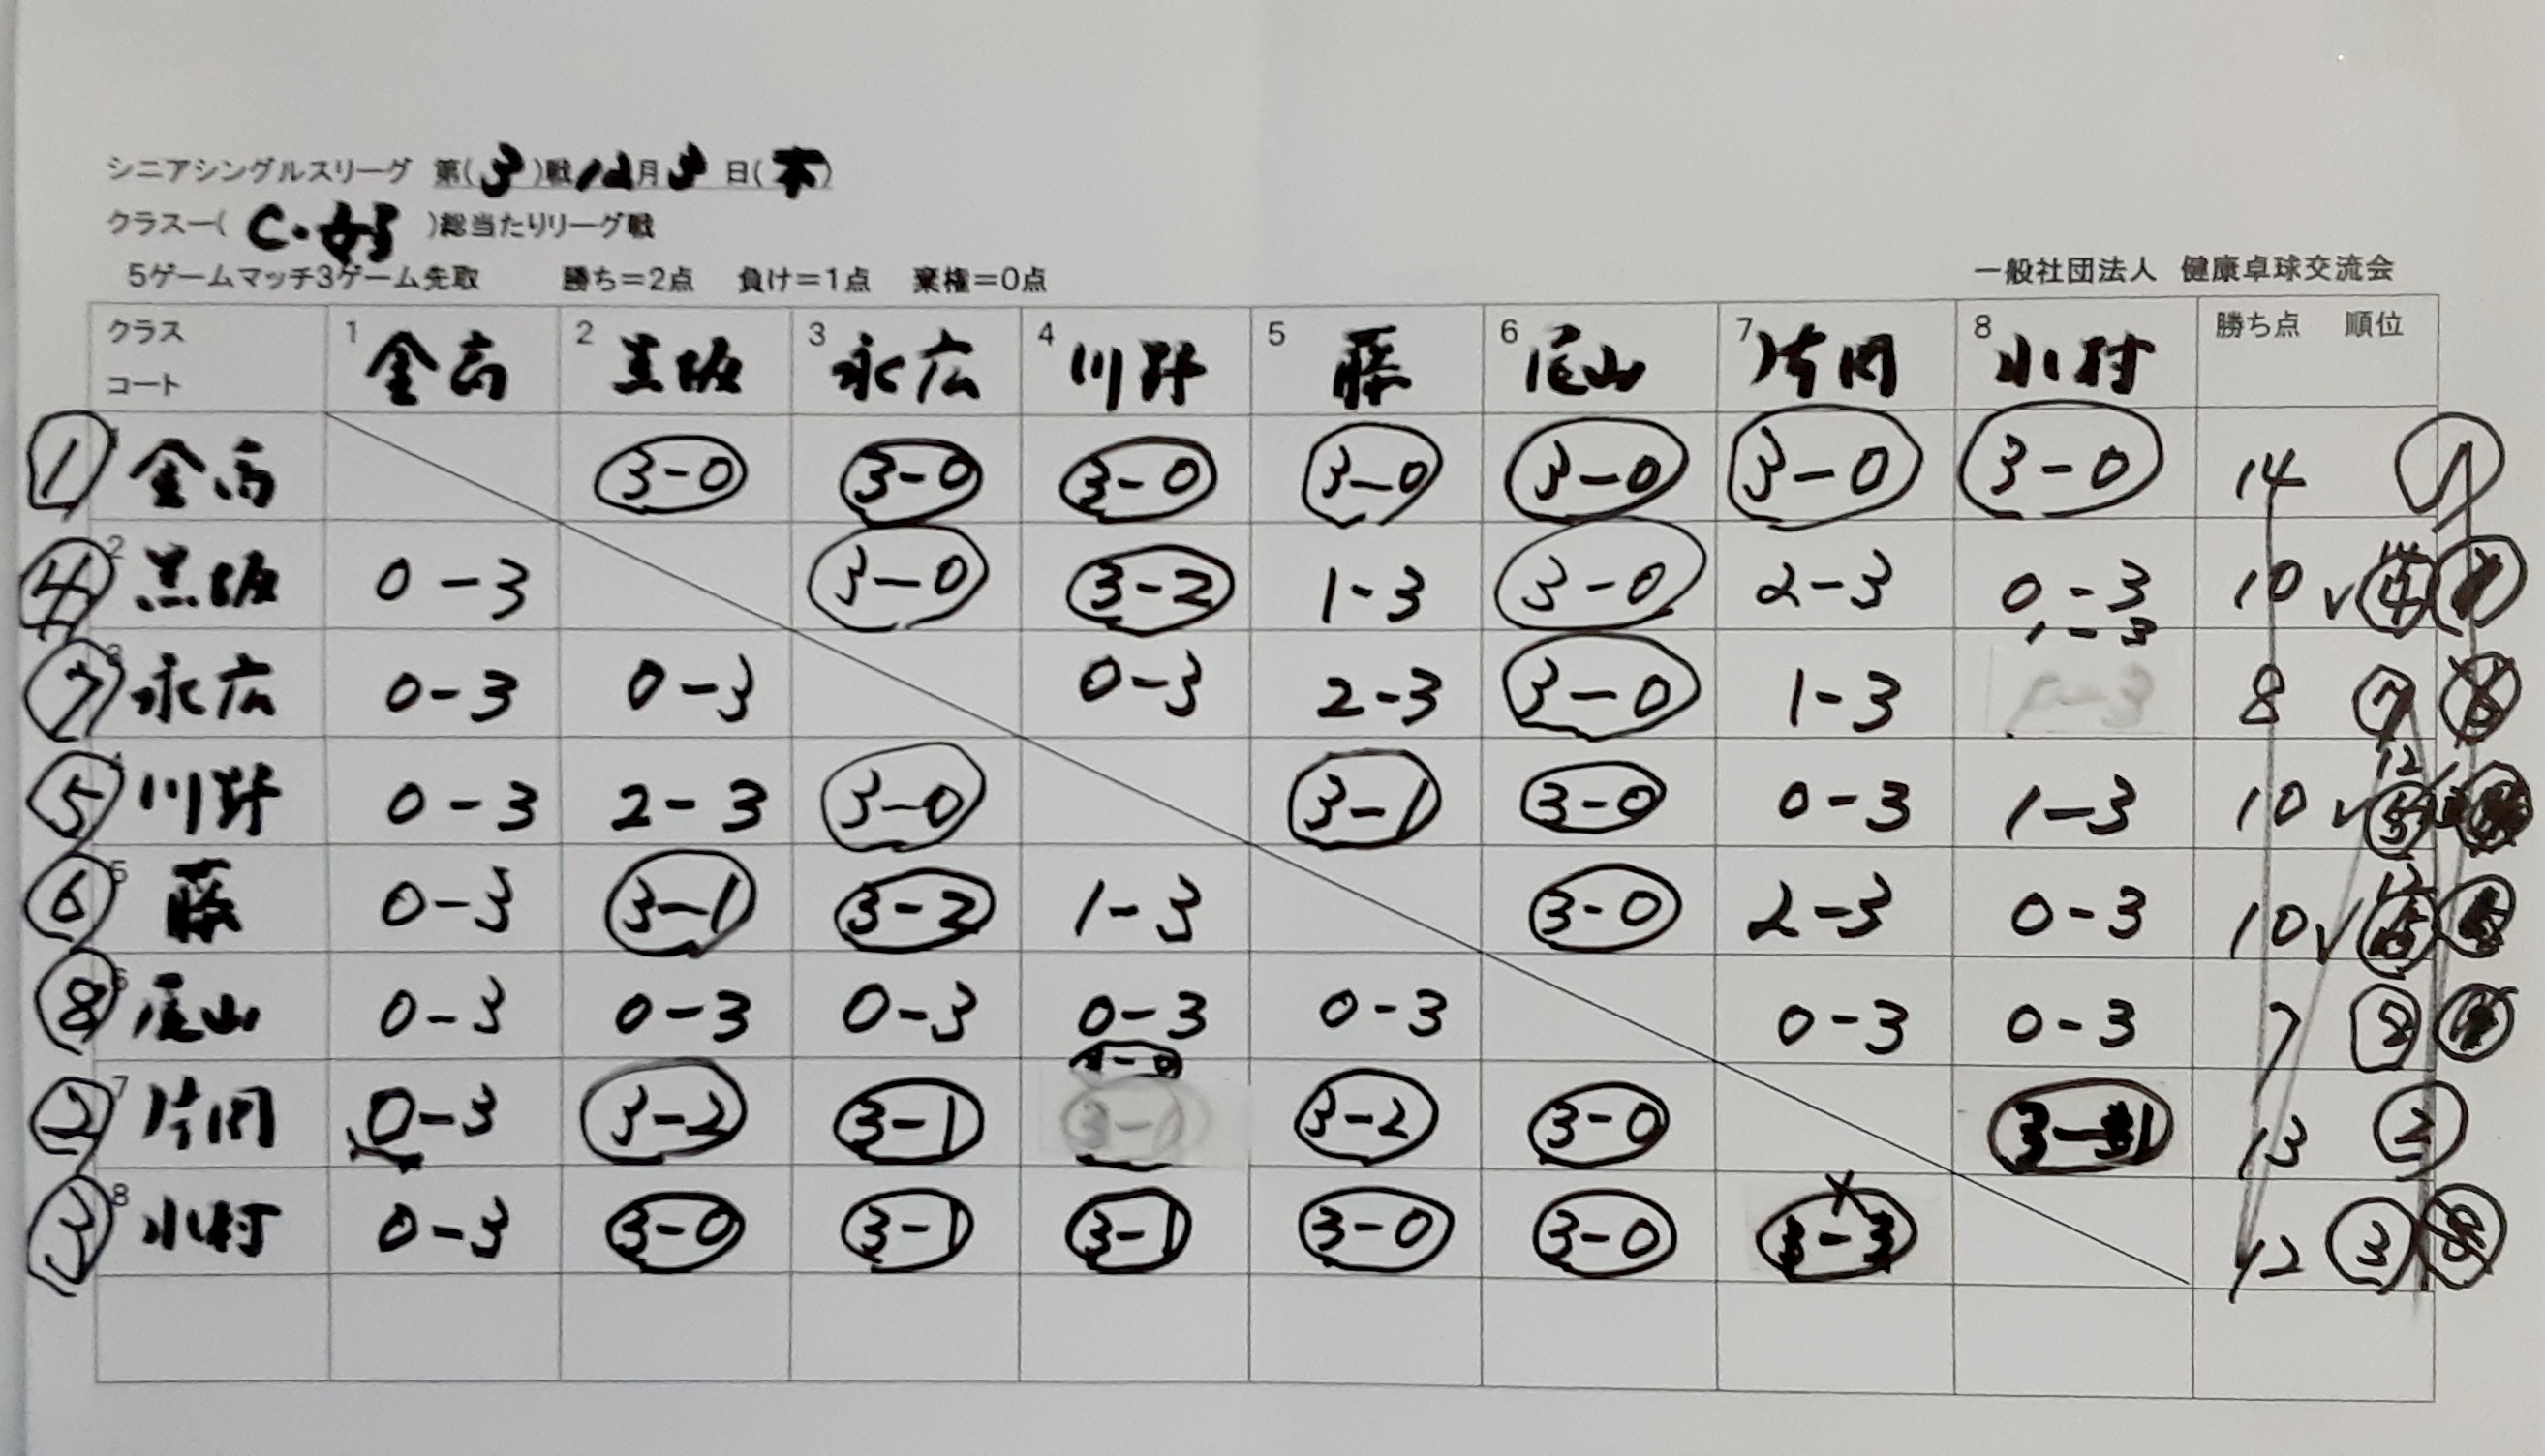 シニアシングルスリーグ 第(3)戦 12月3日(木)
クラスー(C・女子)総当たりリーグ戦
5ゲームマッチ3ゲーム先取 勝ち=2点 負け=1点 棄権=0点
一般社団法人 健康卓球交流会
クラス コート 1 金高 2 黒坂 3 永広 4 川野 5 藤 6 尾山 7 片岡 8 小村 勝ち点 順位
① 金高 3-0 3-0 3-0 3-0 3-0 3-0 3-0 14 1
④ 2 黒坂 0-3 3-0 3-2 1-3 3-0 2-3 0-3 10 ④
⑦ 永広 0-3 0-3 0-3 2-3 3-0 1-3 1-3 8 ⑦
⑤ 川野 0-3 2-3 3-0 3-1 3-0 0-3 1-3 10 ⑤
⑥ 5 藤 0-3 3-1 3-2 1-3 3-0 2-3 0-3 10
⑧ 尾山 0-3 0-3 0-3 0-3 0-3 0-3 0-3 7 ⑧
② 7 片岡 0-3 3-2 3-1 3-0 3-2 3-0 3-1 13 ②
③ 8 小村 0-3 3-0 3-1 3-1 3-0 3-0 12 ③